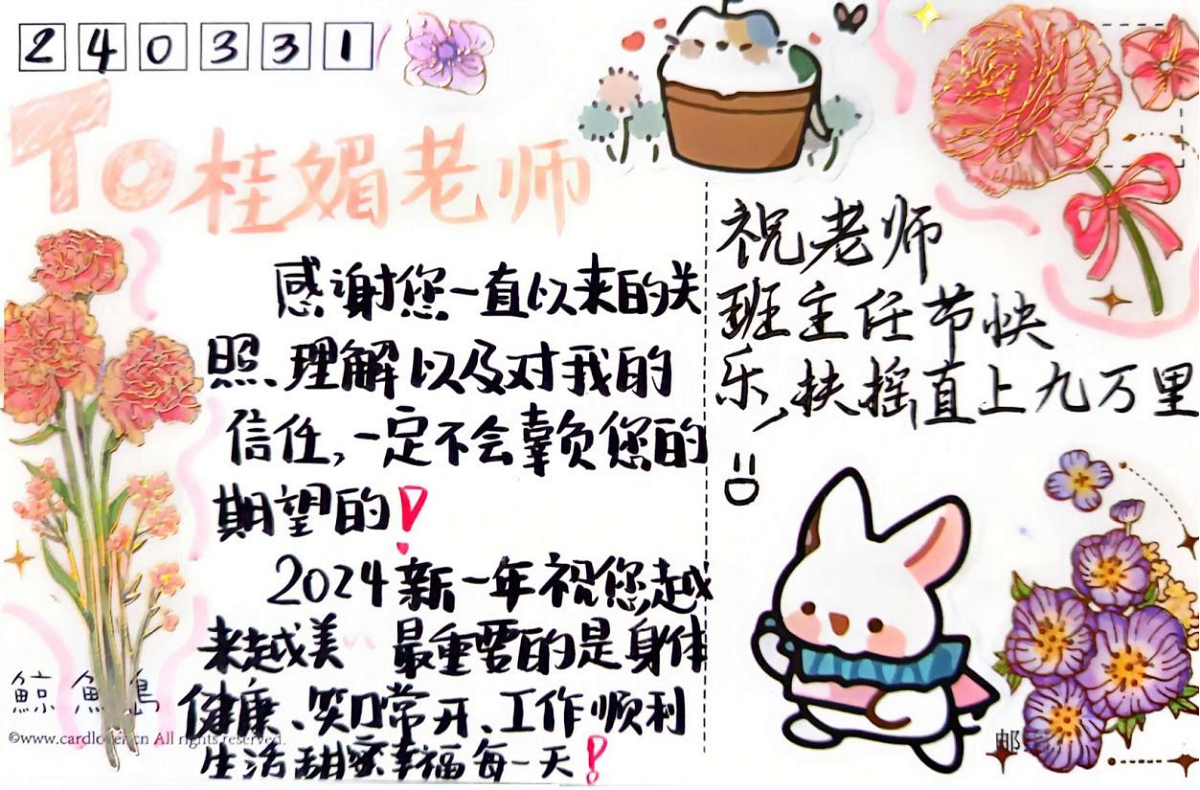 240331
To桂媚老师
感谢您一直以来的关
照、理解以及对我的
信任,一定不会辜负您的
期望的!
2024新一年祝您越
来越美 最重要的是身体
健康、笑口常开、工作顺利
生活甜蜜幸福每一天!
祝老师
班主任节快
乐,扶摇直上九万里
鲸鱼
©www.cardlover.cn All rights reserved.
邮